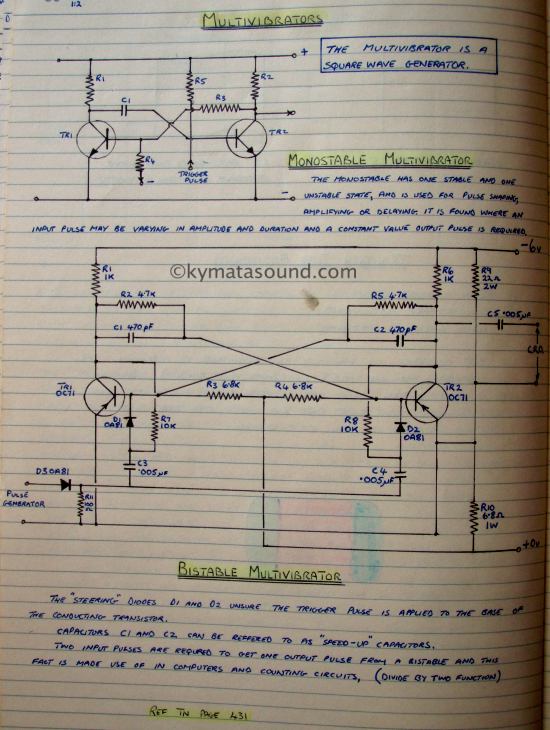 112
MULTIVIBRATORS
+
THE MULTIVIBRATOR IS A
SQUARE WAVE GENERATOR.
R1
R5
R2
C1
R3
TR1
TR2
R4
TRIGGER
PULSE
-
-
MONOSTABLE MULTIVIBRATOR
THE MONOSTABLE HAS ONE STABLE AND ONE
UNSTABLE STATE, AND IS USED FOR PULSE SHAPING,
AMPLIFYING OR DELAYING. IT IS FOUND WHERE AN
INPUT PULSE MAY BE VARYING IN AMPLITUDE AND DURATION AND A CONSTANT VALUE OUTPUT PULSE IS REQUIRED.
-6v
©kymatasound.com
R1
1K
R6
1K
R9
22Ω
2W
R2 4.7K
R5 4.7K
C1 470pF
C2 470pF
C5 .005μF
C.R.O.
TR1
OC71
R3 6.8K
R4 6.8K
TR2
OC71
D1
OA81
R7
10K
R8
10K
D2
OA81
C3
.005μF
C4
.005μF
D3 OA81
PULSE
GENERATOR
R11
100
Ω
R10
6.8Ω
1W
+0v
BISTABLE MULTIVIBRATOR
THE "STEERING" DIODES D1 AND D2 UNSURE THE TRIGGER PULSE IS APPLIED TO THE BASE OF
THE CONDUCTING TRANSISTOR.
CAPACITORS C1 AND C2 CAN BE REFFERED TO AS "SPEED-UP" CAPACITORS.
TWO INPUT PULSES ARE REQUIRED TO GET ONE OUTPUT PULSE FROM A BISTABLE AND THIS
FACT IS MADE USE OF IN COMPUTERS AND COUNTING CIRCUITS, (DIVIDE BY TWO FUNCTION)
REF TN PAGE 431